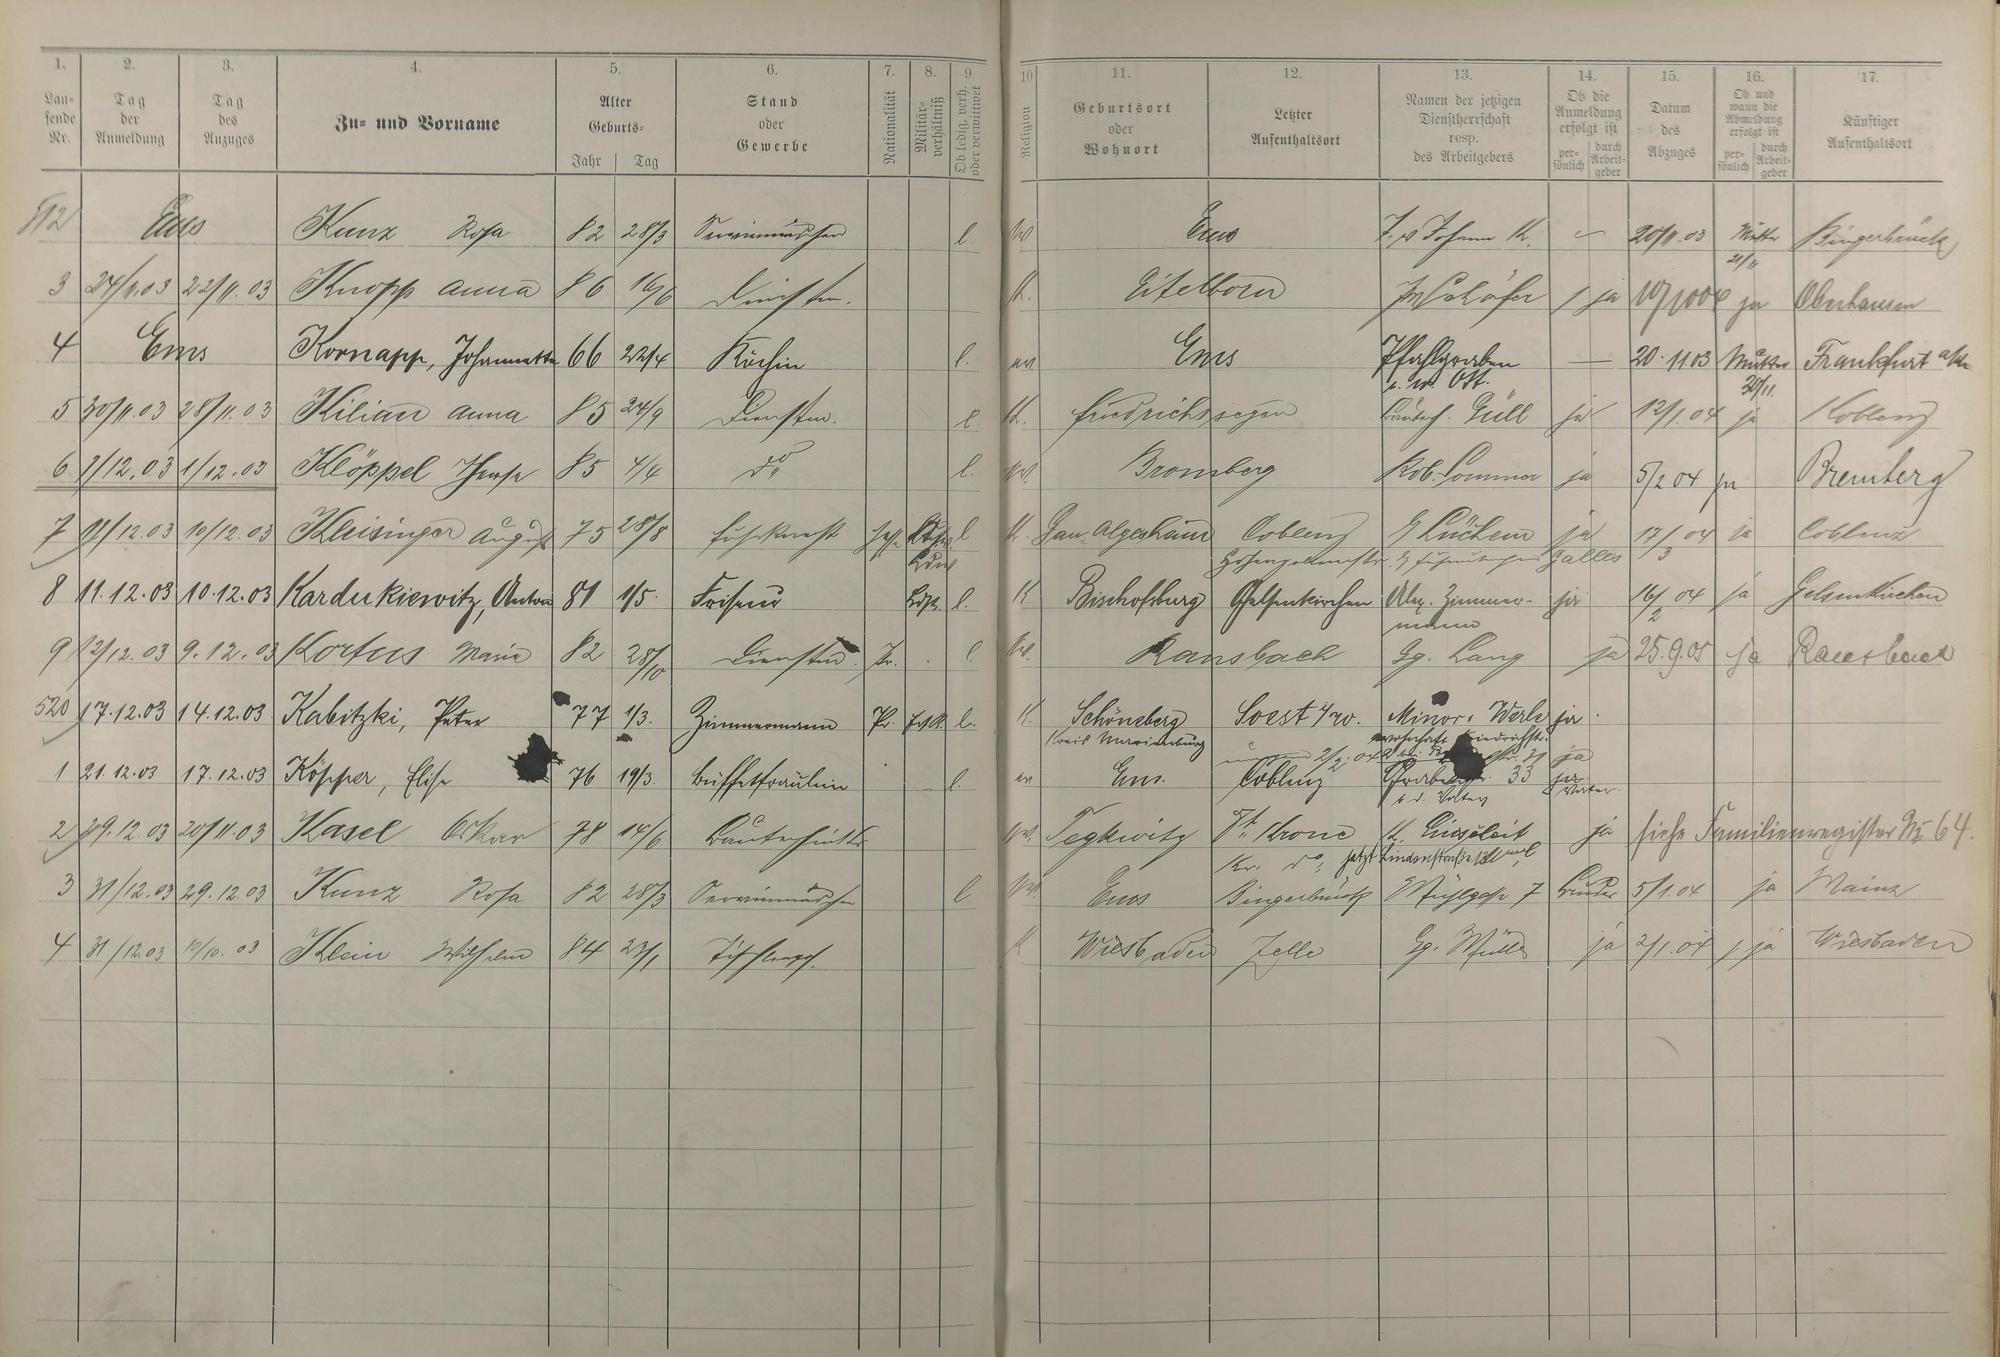 1. 2. 3. 4. 5. 6. 7. 8. 9. 10 11. 12. 13. 14. 15. 16. 17.
Laufende Nr. Tag der Anmeldung Tag des Anzuges Zu- und Vorname Alter Geburts- Jahr Tag Stand oder Gewerbe Nationalität Militärverhältniß Ob ledig, verh. oder verwittwet Religion Geburtsort oder Wohnort Letzter Aufenthaltsort Namen der jetzigen Dienstherrschaft resp. des Arbeitgebers Ob die Anmeldung erfolgt ist persönlich durch Arbeitgeber Datum des Abzuges Ob und wann die Abmeldung erfolgt ist persönlich durch Arbeitgeber Künftiger Aufenthaltsort
512 Ems Kunz Rosa 82 28/3 l. Ems Johann K. 20/11.03 Mutter Bingerbrück
21/11
3 24/11.03 22/11.03 Knopp Anna 86 16/6 Dienstm. K. Eitelborn Schäfer ja ja Oberhausen
4 Ems Kornapp, Johannette 66 22/4 Köchin l. ev. Ems Pfahlgraben — 20.11.03 Mutter Frankfurt a/M
30/11.
5 30/11.03 28/11.03 Kilian Anna 85 24/9 Dienstm. l. K. Friedrichssegen Güll ja 12/1.04 ja Koblenz
6 1/12.03 Klöppel 85 4/4 do l. ev. Bromberg Rob. Sommer ja 5/2 04 ja Bremberg
7 11/12.03 10/12.03 Kleisinger August 75 28/8 Fuhrknecht l K. Gau-Algesheim Coblenz Lüchem ja 17/3 04 ja Coblenz
Galles
8 11.12.03 10.12.03 Kardukiewitz, Anton 81 1/5. Friseur l. K Bischofsburg Gelsenkirchen Alex. Zimmermann ja 16/2 04 ja Gelsenkirchen
9 12/12.03 9.12.03 Kortus Maria 82 28/10 Dienstm. Pr. l. ev. Ransbach Gg. Lang ja 25.9.05 ja Ransbach
520 17.12.03 14.12.03 Kabitzki, Peter 77 1/3. Zimmermann Pr. l. K. Schöneberg Soest Minor, Werle ja.
Kreis Marienburg wohnhaft Friedrichstr.
2/2.04 ja
1 21.12.03 17.12.03 Köpper, Elise 76 19/3. Büffetfräulein l. ev Ems. Coblenz 33 ja
Vater
2 29.12.03 20/11.03 Kasel Oskar 78 14/6 ev. Tegkwitz Krone ja siehe Familienregister No 64.
do, jetzt Lindenstraße
3 31/12.03 29.12.03 Kunz Rosa 82 28/3 l. ev. Ems Bingerbrück Mühlgasse 7 Bruder 5/1.04 ja Mainz
4 31/12.03 10/10.03 Klein Wilhelm 84 23/1 K Wiesbaden Zelle Gg. Müller ja 2/1.04 ja Wiesbaden